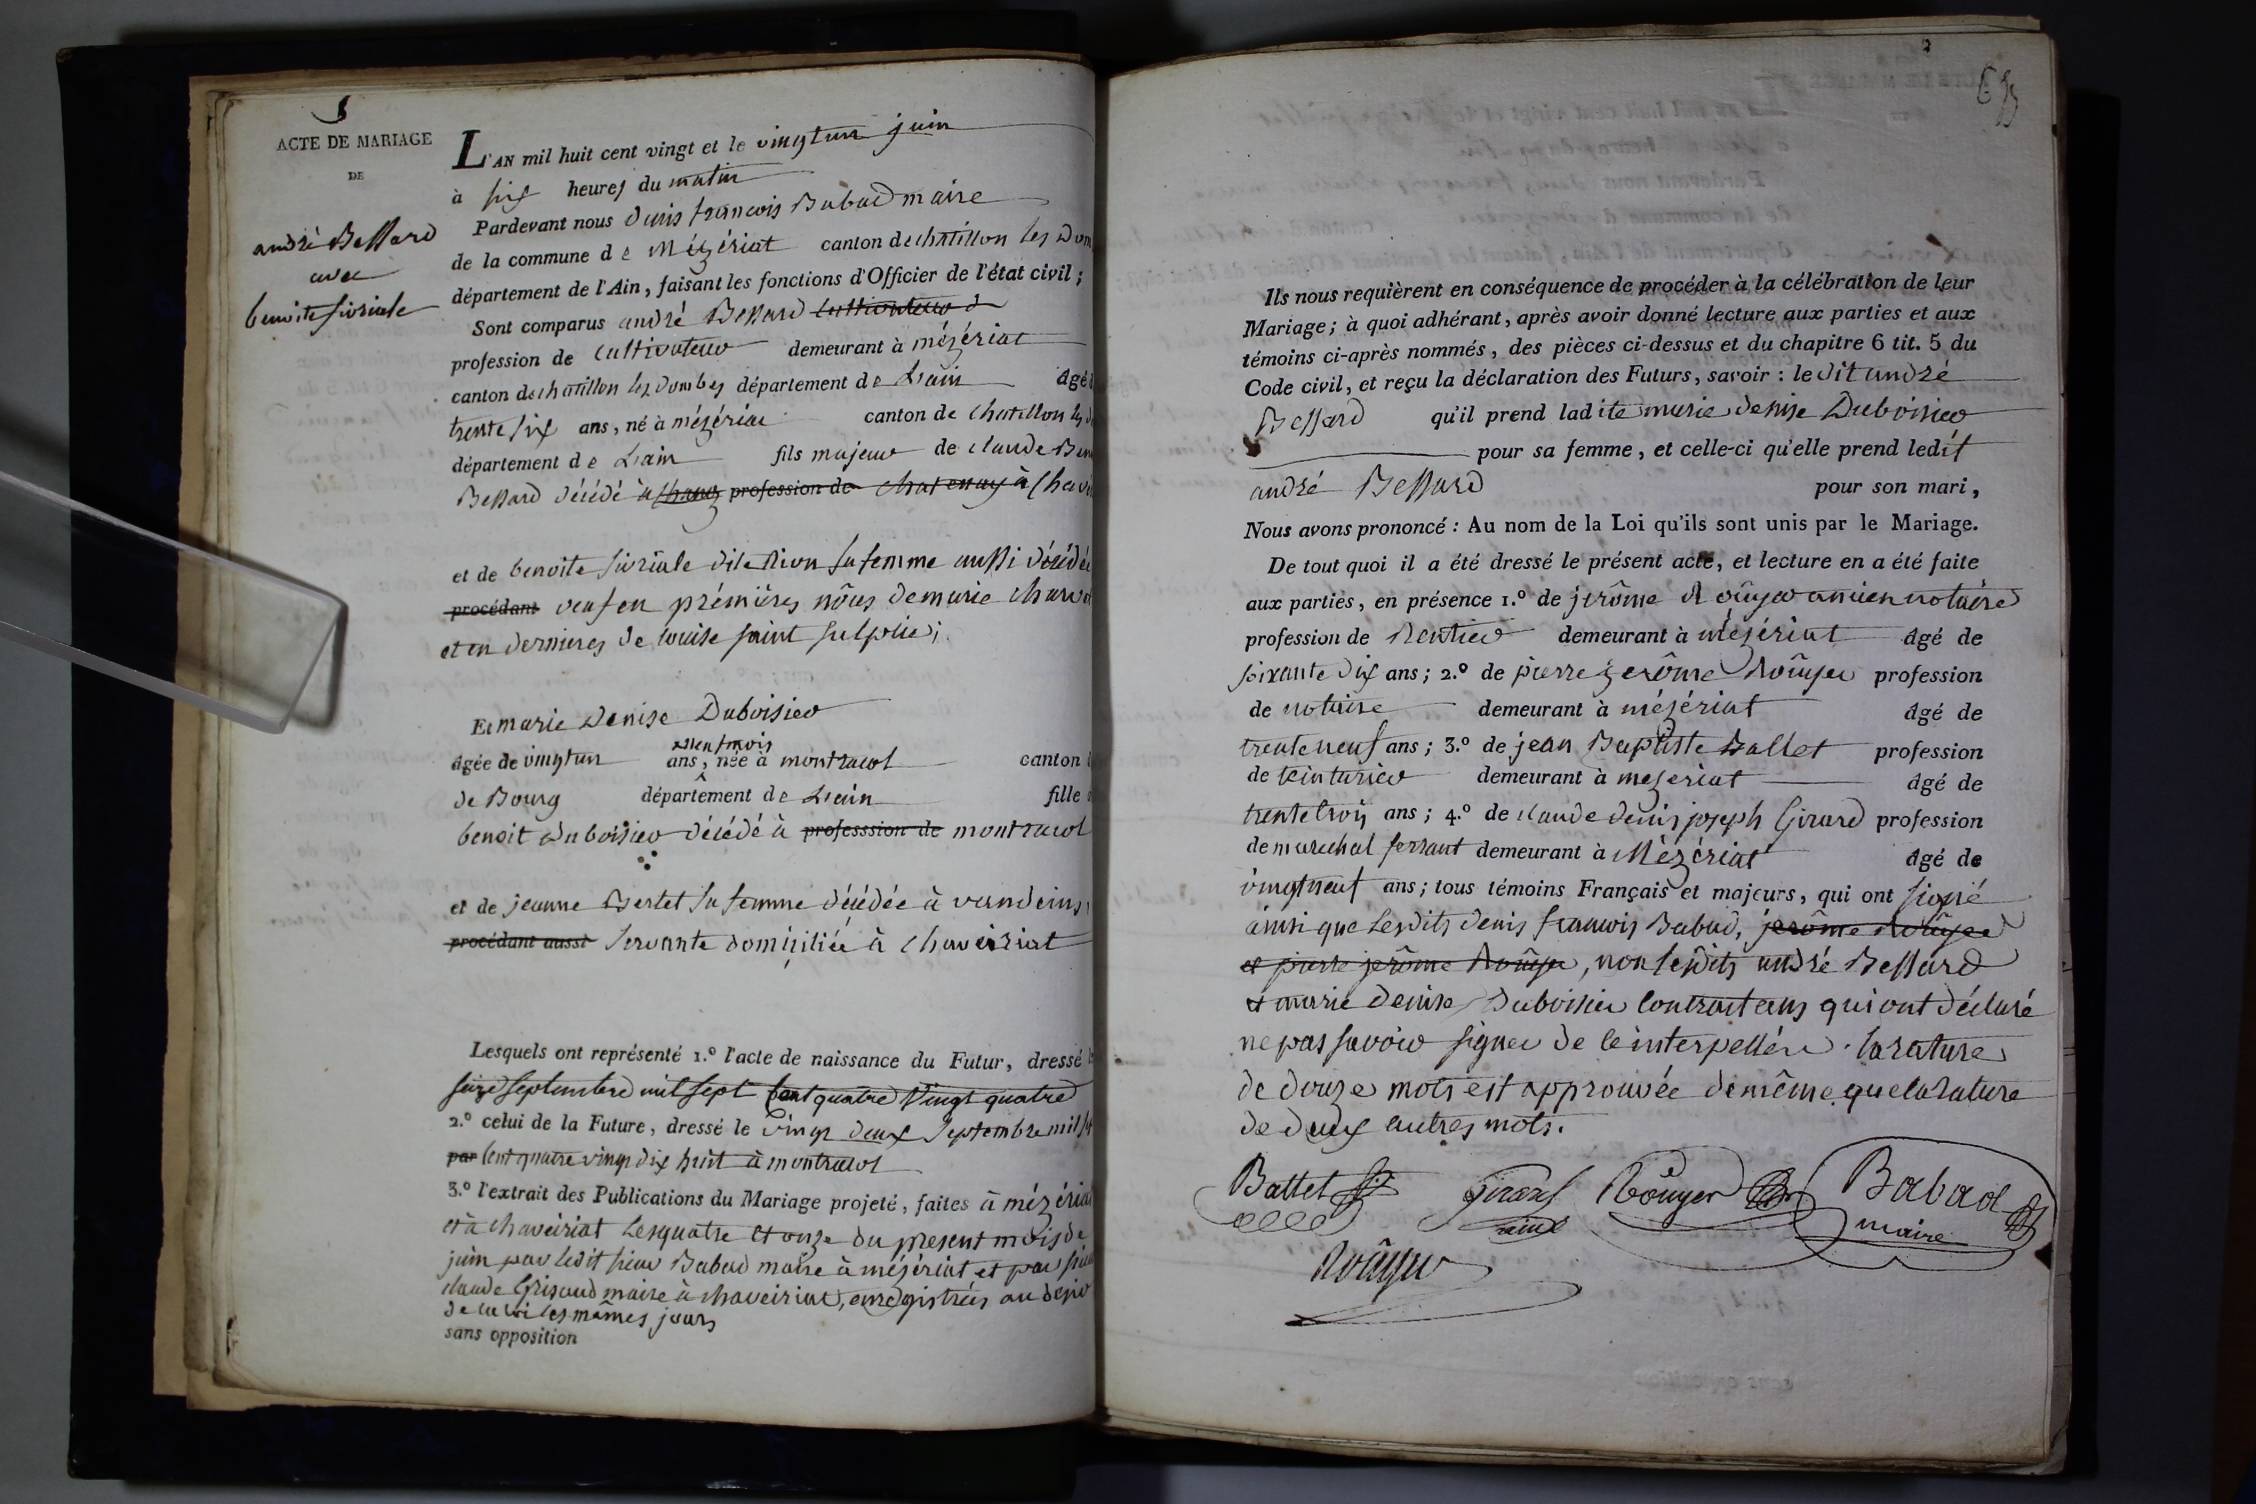 8
ACTE DE MARIAGE
DE
andré Bessard
avec
benoite sivriale
L'AN mil huit cent vingt et le vingtun juin
à six heures du matin
Pardevant nous denis françois Babad maire
de la commune de Mézériat canton de chatillon les Dom
département de l'Ain, faisant les fonctions d'Officier de l'état civil;
Sont comparus andré Bessard cultivateur d
profession de Cultivateur demeurant à mézériat
canton de chatillon les Dombes département de Lain âgé
trente six ans, né à mézériat canton de chatillon les
département de Lain fils majeur de claude Ben
Bessard décédé à profession de chatenay à Chavei
et de benoite sivriale dite Nion sa femme aussi décédée
procédant veuf en prémières nôces de marie charv
et en dernieres de louise saint sulplie;
Et marie Denise Duboisier
neuf mois
âgée de vingtun ans, née à montracol canton
de Bourg département de Lain fille
benoit Duboisier décédé à professsion de montracol
et de jeanne Bertet sa femme décédée à vandeins
procédant aussi servante domiciliée à chaveiriat
Lesquels ont représenté 1.º l'acte de naissance du Futur, dressé
seize septembre mil sept Cent quatre Vingt quatre
2.º celui de la Future, dressé le vingt deux septembre mil sep
par cent quatre vingt dix huit à montracol
3.º l'extrait des Publications du Mariage projeté, faites à mézériat
et à chaveiriat les quatre et onze du present mois de
juin par ledit sieur Babad maire à mézériat et par sieu
claude Grisaud maire à chaveiriat, enregistrées au desir
de la loi les mêmes jours
sans opposition
Ils nous requièrent en conséquence de procéder à la célébration de leur
Mariage; à quoi adhérant, après avoir donné lecture aux parties et aux
témoins ci-après nommés, des pièces ci-dessus et du chapitre 6 tit. 5 du
Code civil, et reçu la déclaration des Futurs, savoir: le dit andré
Bessard qu'il prend ladite marie denise Duboisier
pour sa femme, et celle-ci qu'elle prend ledit
andré Bessard pour son mari,
Nous avons prononcé: Au nom de la Loi qu'ils sont unis par le Mariage.
De tout quoi il a été dressé le présent acte, et lecture en a été faite
aux parties, en présence 1.º de jerôme Roûyer ancien notaire
profession de Rentier demeurant à mézériat âgé de
soixante dix ans; 2.º de pierre jerôme Roûyer profession
de notaire demeurant à mézériat âgé de
trente neuf ans; 3.º de jean Baptiste Ballet profession
de teinturier demeurant à mezeriat âgé de
trente trois ans; 4.º de claude denis joseph Girard profession
de marechal ferrant demeurant à Mézériat âgé de
vingt neuf ans; tous témoins Français et majeurs, qui ont signé
ainsi que lesdits denis francois Babad, jerôme Roûyer
et pierre jerôme Roûyer, non lesdits andré Bessard
et marie denise Duboisier contractans qui ont déclaré
ne pas savoir signer de ce interpellés. la rature
de douze mots est approuvée de même que la rature
de deux autres mots.
Ballet Girard Rôuyer Babad
ainé maire
Roûyer